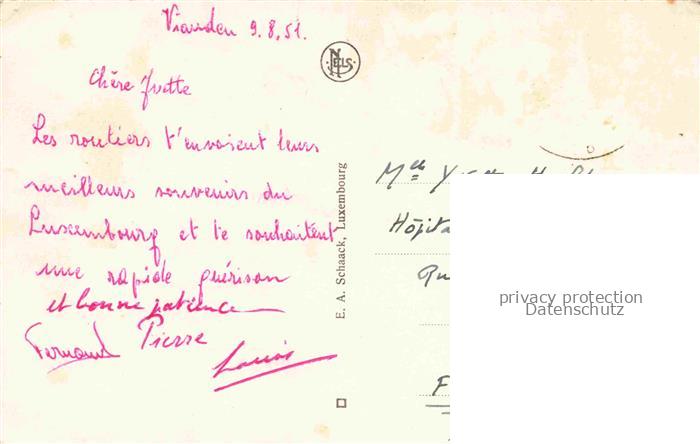 Vianden 9.8.51.
NELS
Chère Yvette
Les routiers t'envoient leurs
meilleurs souvenirs du
Luxembourg et te souhaitent
une rapide guérison
et bonne patience
Fernand Pierre
Louis
E. A. Schaack, Luxembourg
Melle
privacy protection
Datenschutz